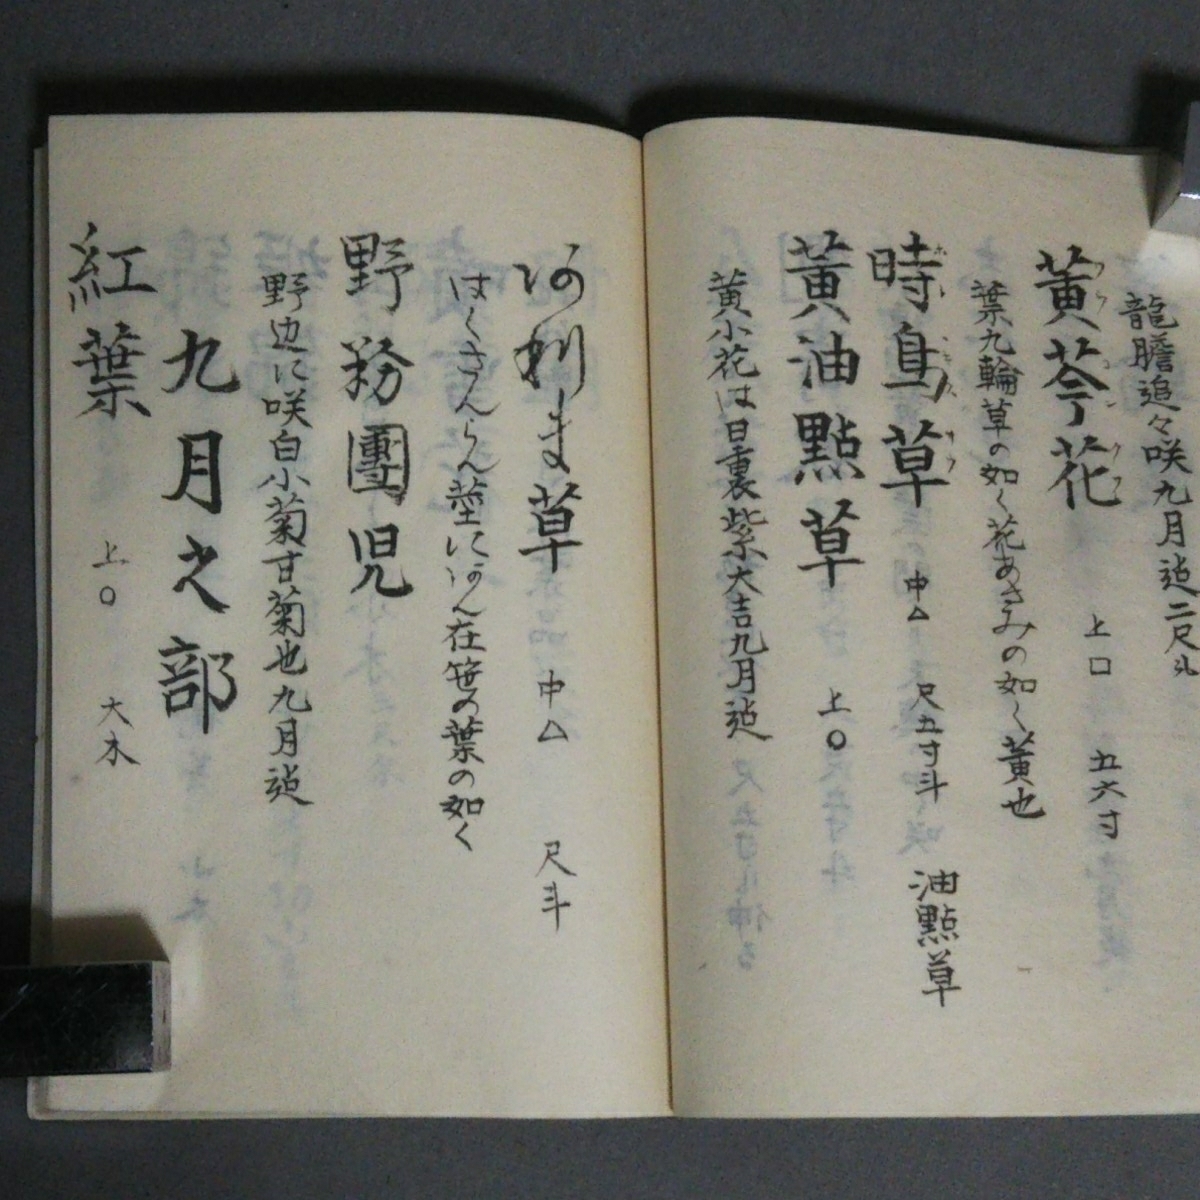 龍膽追々咲九月迠二尺斗
黄芩花 上□ 五六寸
わうごんくわ
葉九輪草の如く花あさみの如く黄也
時鳥草 中△ 尺五寸斗 油點草
ほとゝぎすサウ
黄油點草 上○
黄小花は日裏紫大吉九月迠
阿利ま草 中△ 尺斗
はくさんらん莖にはん在笹の葉の如く
野菊團児
野边に咲白小菊甘菊也九月迠
九月之部
紅葉 上○ 大木